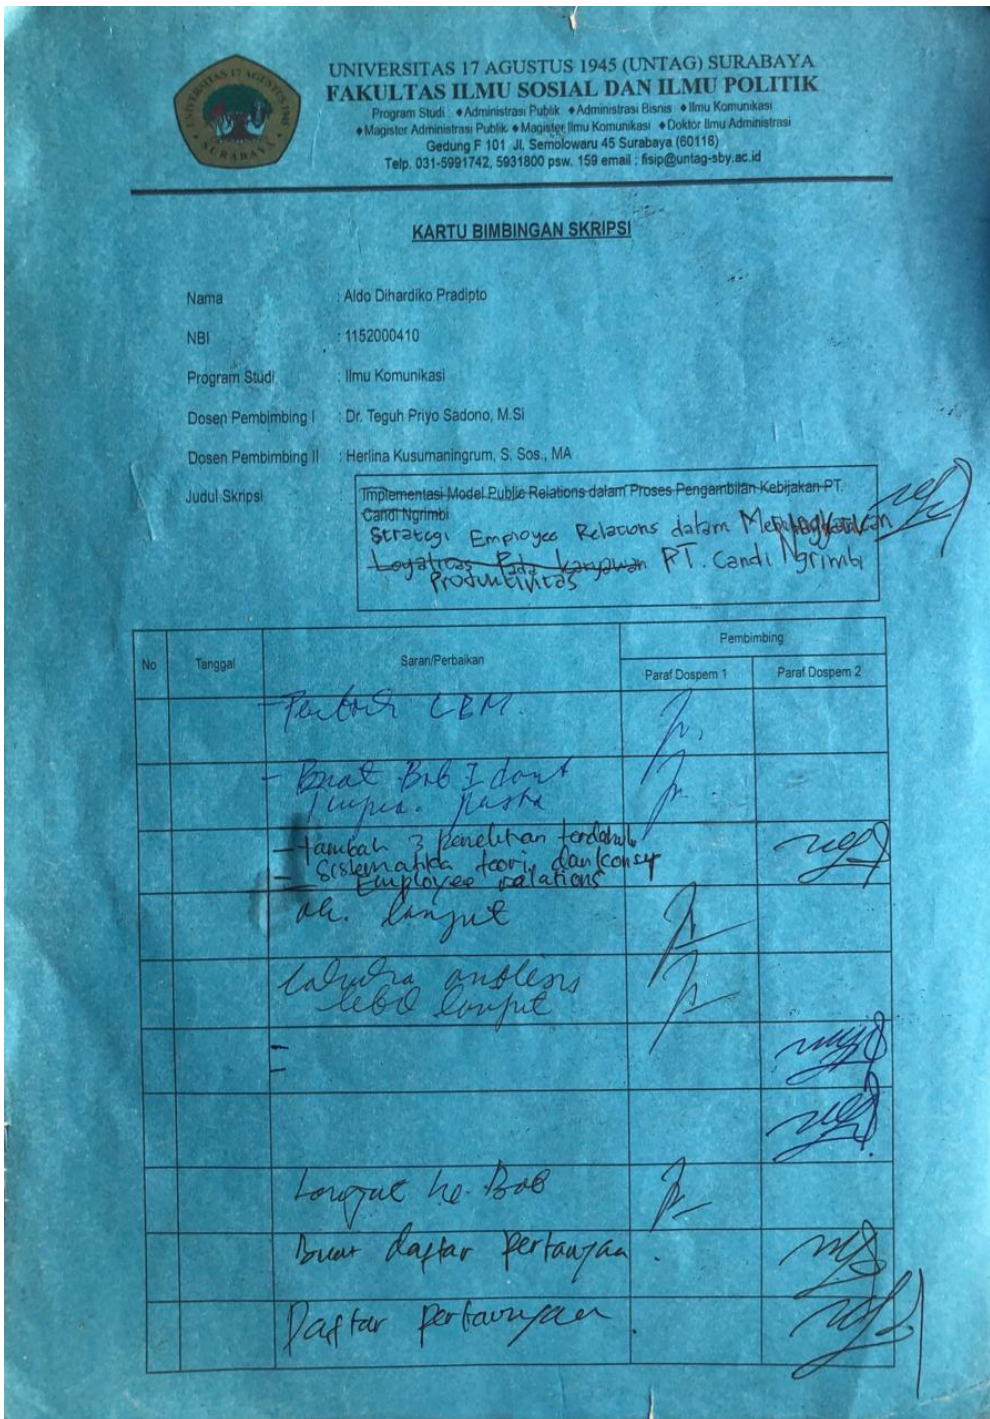 UNIVERSITAS 17 AGUSTUS 1945
SURABAYA
UNIVERSITAS 17 AGUSTUS 1945 (UNTAG) SURABAYA
FAKULTAS ILMU SOSIAL DAN ILMU POLITIK
Program Studi ♦Administrasi Publik ♦Administrasi Bisnis ♦Ilmu Komunikasi
♦Magister Administrasi Publik ♦Magister Ilmu Komunikasi ♦Doktor Ilmu Administrasi
Gedung F 101 Jl. Semolowaru 45 Surabaya (60118)
Telp. 031-5991742, 5931800 psw. 159 email : fisip@untag-sby.ac.id
KARTU BIMBINGAN SKRIPSI
Nama : Aldo Dihardiko Pradipto
NBI : 1152000410
Program Studi : Ilmu Komunikasi
Dosen Pembimbing I : Dr. Teguh Priyo Sadono, M.Si
Dosen Pembimbing II : Herlina Kusumaningrum, S. Sos., MA
Judul Skripsi : Implementasi Model Public Relations dalam Proses Pengambilan Kebijakan PT.
Candi Ngrimbi
Strategi Employee Relations dalam Meningkatkan
Loyalitas Pada Karyawan PT. Candi Ngrimbi
Produktivitas
No Tanggal Saran/Perbaikan Pembimbing
Paraf Dospem 1 Paraf Dospem 2
LBM.
- Buat Bab I
- tambah 3 penelitian terdahulu
- Sistematika teori dan konsep
- Employee relations
ok. lanjut
analisis
lanjut
-
-
Lanjut ke. Bab
Buat daftar pertanyaan
Daftar pertanyaan